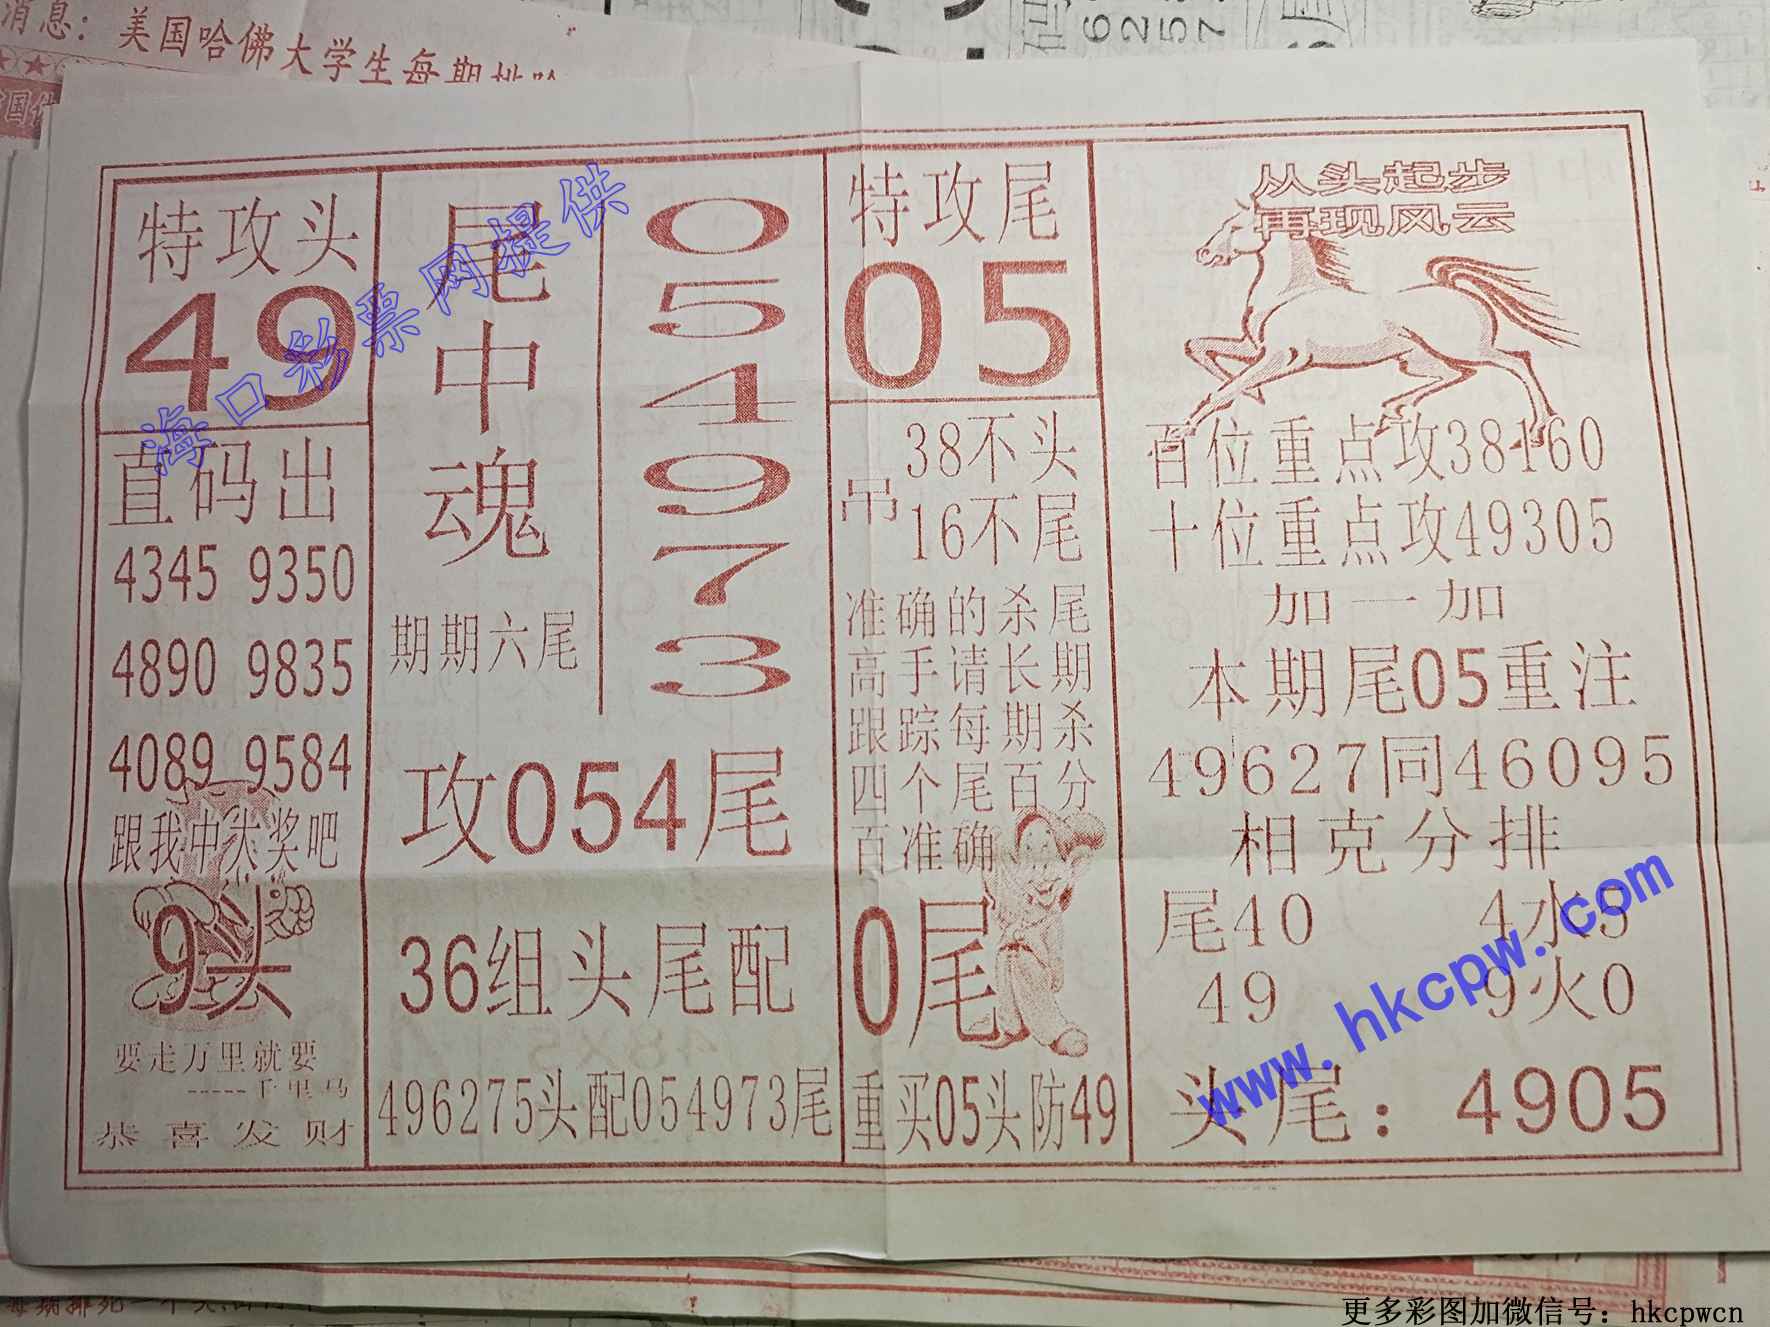 消息：美国哈佛大学生每期排
特攻头
49
直码出
4345 9350
4890 9835
4089 9584
跟我中大奖吧
9头
要走万里就要
-----千里马
恭喜发财
尾中魂
期期六尾
0
5
4
9
7
3
攻054尾
36组头尾配
496275头配054973尾
特攻尾
05
吊
38不头
16不尾
准确的杀尾
高手请长期
跟踪每期杀
四个尾百分
百准确
0尾
重买05头防49
从头起步
再现风云
百位重点攻38160
十位重点攻49305
加一加
本期尾05重注
49627同46095
相克分排
尾40 4水5
49 9火0
头尾：4905
海口彩票网提供
www.hkcpw.com
更多彩图加微信号：hkcpwcn